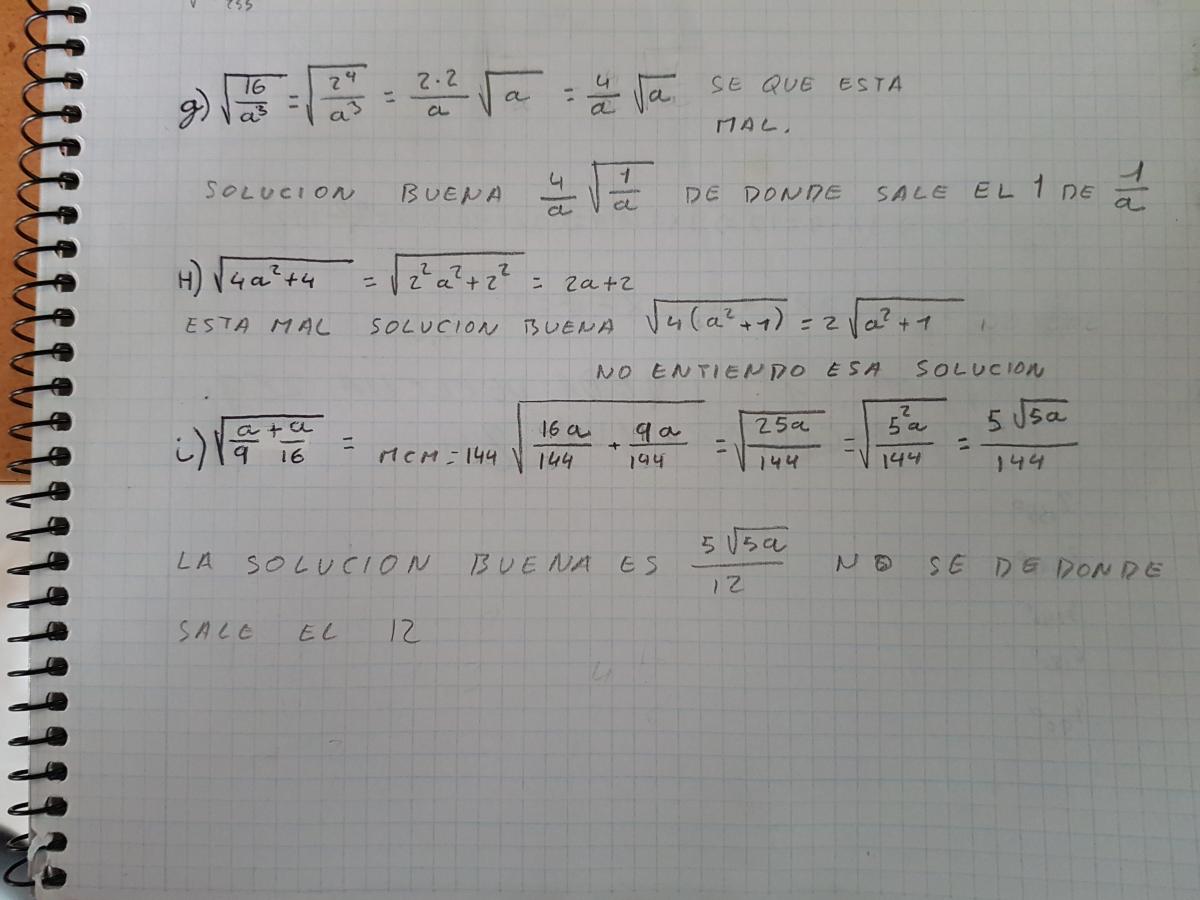 255
g) √(16/a³) = √(2⁴/a³) = 2·2/a √a = 4/a √a SE QUE ESTA
MAL.
SOLUCION BUENA 4/a √(1/a) DE DONDE SALE EL 1 DE 1/a
H) √(4a²+4) = √(2²a²+2²) = 2a+2
ESTA MAL SOLUCION BUENA √(4(a²+1)) = 2√(a²+1)
NO ENTIENDO ESA SOLUCION
i) √(a/9 + a/16) = MCM = 144 √(16a/144 + 9a/144) = √(25a/144) = √(5²a/144) = 5√5a/144
LA SOLUCION BUENA ES 5√5a/12 NO SE DE DONDE
SALE EL 12